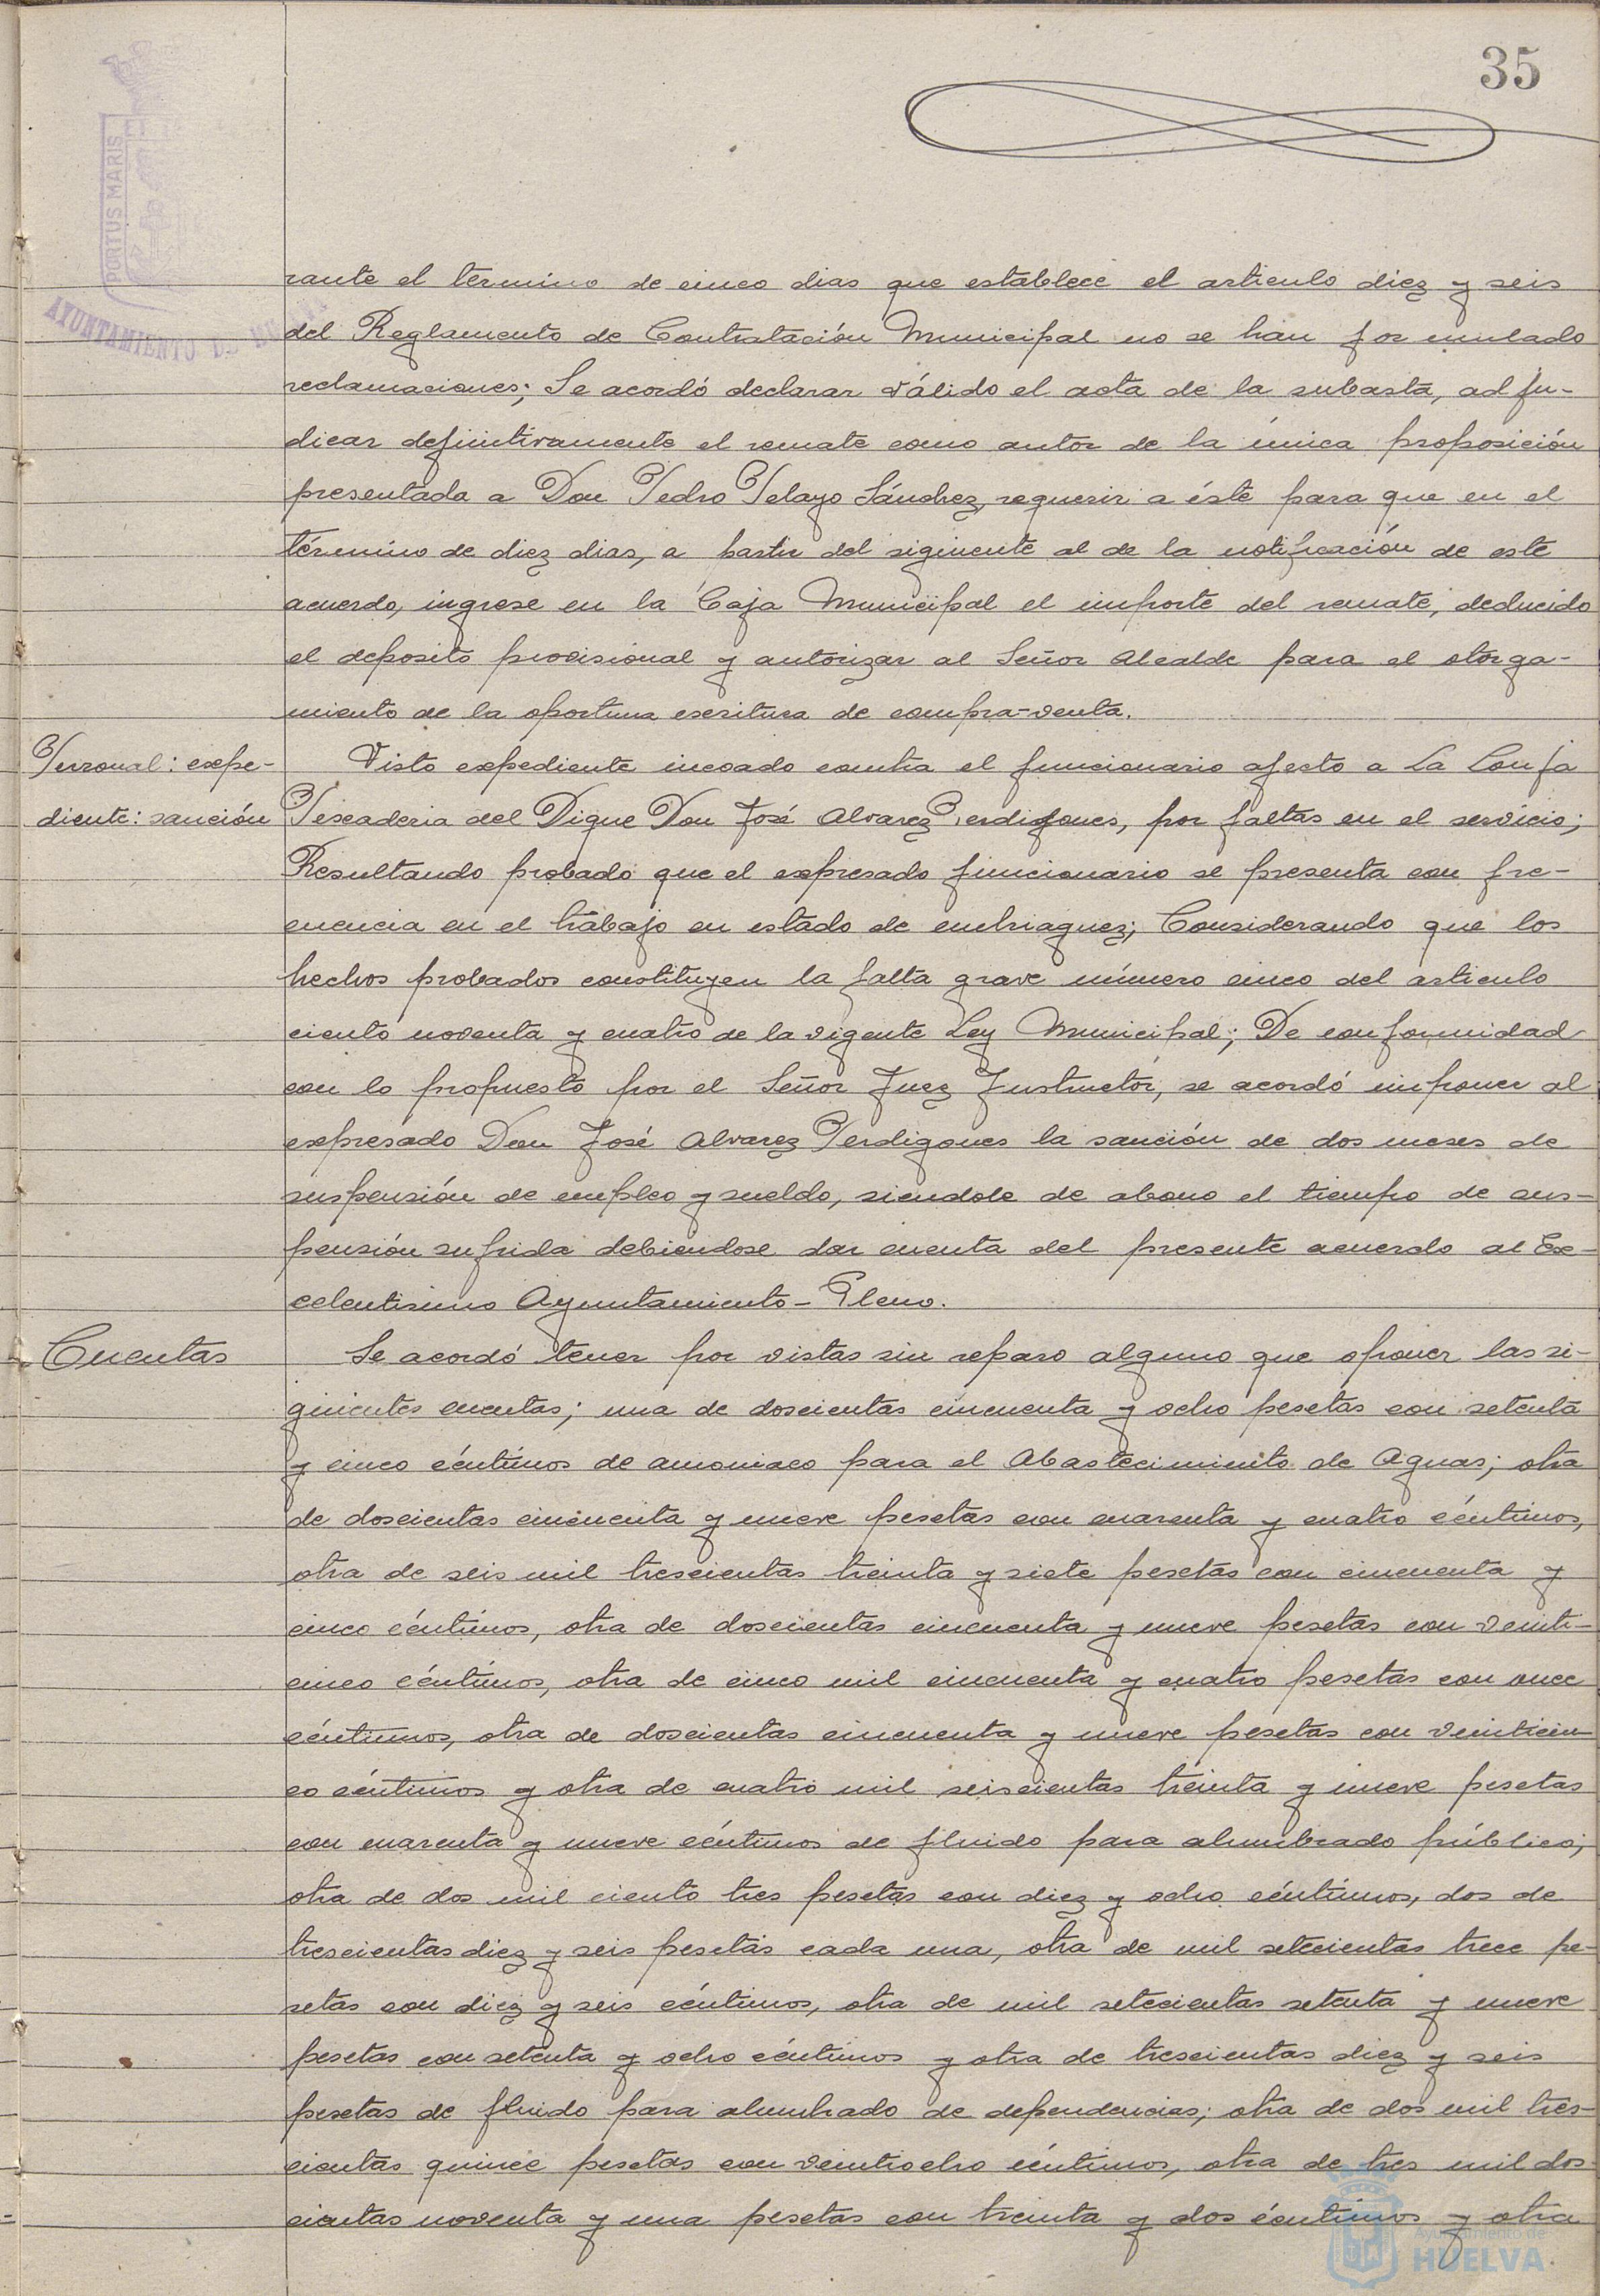 35
PORTUS MARIS
AYUNTAMIENTO DE HUELVA
rante el termino de cinco dias que establece el articulo diez y seis
del Reglamento de Contratación Municipal no se han formulado
reclamaciones; Se acordó declarar válido el acta de la subasta, adju-
dicar definitivamente el remate como autor de la única proposición
presentada a Don Pedro Pelayo Sánchez, requerir a éste para que en el
término de diez dias, a partir del siguiente al de la notificación de este
acuerdo, ingrese en la Caja Municipal el importe del remate, deducido
el deposito provisional y autorizar al Señor Alcalde para el otorga-
miento de la oportuna escritura de compra-venta.
Personal: expe-
diente: sanción
Visto expediente incoado contra el funcionario afecto a La Lonja
Pescaderia del Dique Don José Alvarez Perdigones, por faltas en el servicio;
Resultando probado que el expresado funcionario se presenta con fre-
cuencia en el trabajo en estado de embriaguez; Considerando que los
hechos probados constituyen la falta grave número cinco del articulo
ciento noventa y cuatro de la vigente Ley Municipal; De conformidad
con lo propuesto por el Señor Juez Instructor, se acordó imponer al
expresado Don José Alvarez Perdigones la sanción de dos meses de
suspensión de empleo y sueldo, siendole de abono el tiempo de sus-
pensión sufrida debiendose dar cuenta del presente acuerdo al Ex-
celentisimo Ayuntamiento-Pleno.
Cuentas
Se acordó tener por vistas sin reparo alguno que oponer las si-
guientes cuentas; una de doscientas cincuenta y ocho pesetas con setenta
y cinco céntimos de amoniaco para el Abastecimiento de Aguas; otra
de doscientas cincuenta y nueve pesetas con cuarenta y cuatro céntimos,
otra de seis mil trescientas treinta y siete pesetas con cincuenta y
cinco céntimos, otra de doscientas cincuenta y nueve pesetas con veinti-
cinco céntimos, otra de cinco mil cincuenta y cuatro pesetas con once
céntimos, otra de doscientas cincuenta y nueve pesetas con veinticin
co céntimos y otra de cuatro mil seiscientas treinta y nueve pesetas
con cuarenta y nueve céntimos de fluido para alumbrado público;
otra de dos mil ciento tres pesetas con diez y ocho céntimos, dos de
trescientas diez y seis pesetas cada una, otra de mil setecientas trece pe-
setas con diez y seis céntimos, otra de mil setecientas setenta y nueve
pesetas con setenta y ocho céntimos y otra de trescientas diez y seis
pesetas de fluido para alumbrado de dependencias; otra de dos mil tres-
cientas quince pesetas con veintiocho céntimos, otra de tres mil dos-
cientas noventa y una pesetas con treinta y dos céntimos y otra
Ayuntamiento de
HUELVA